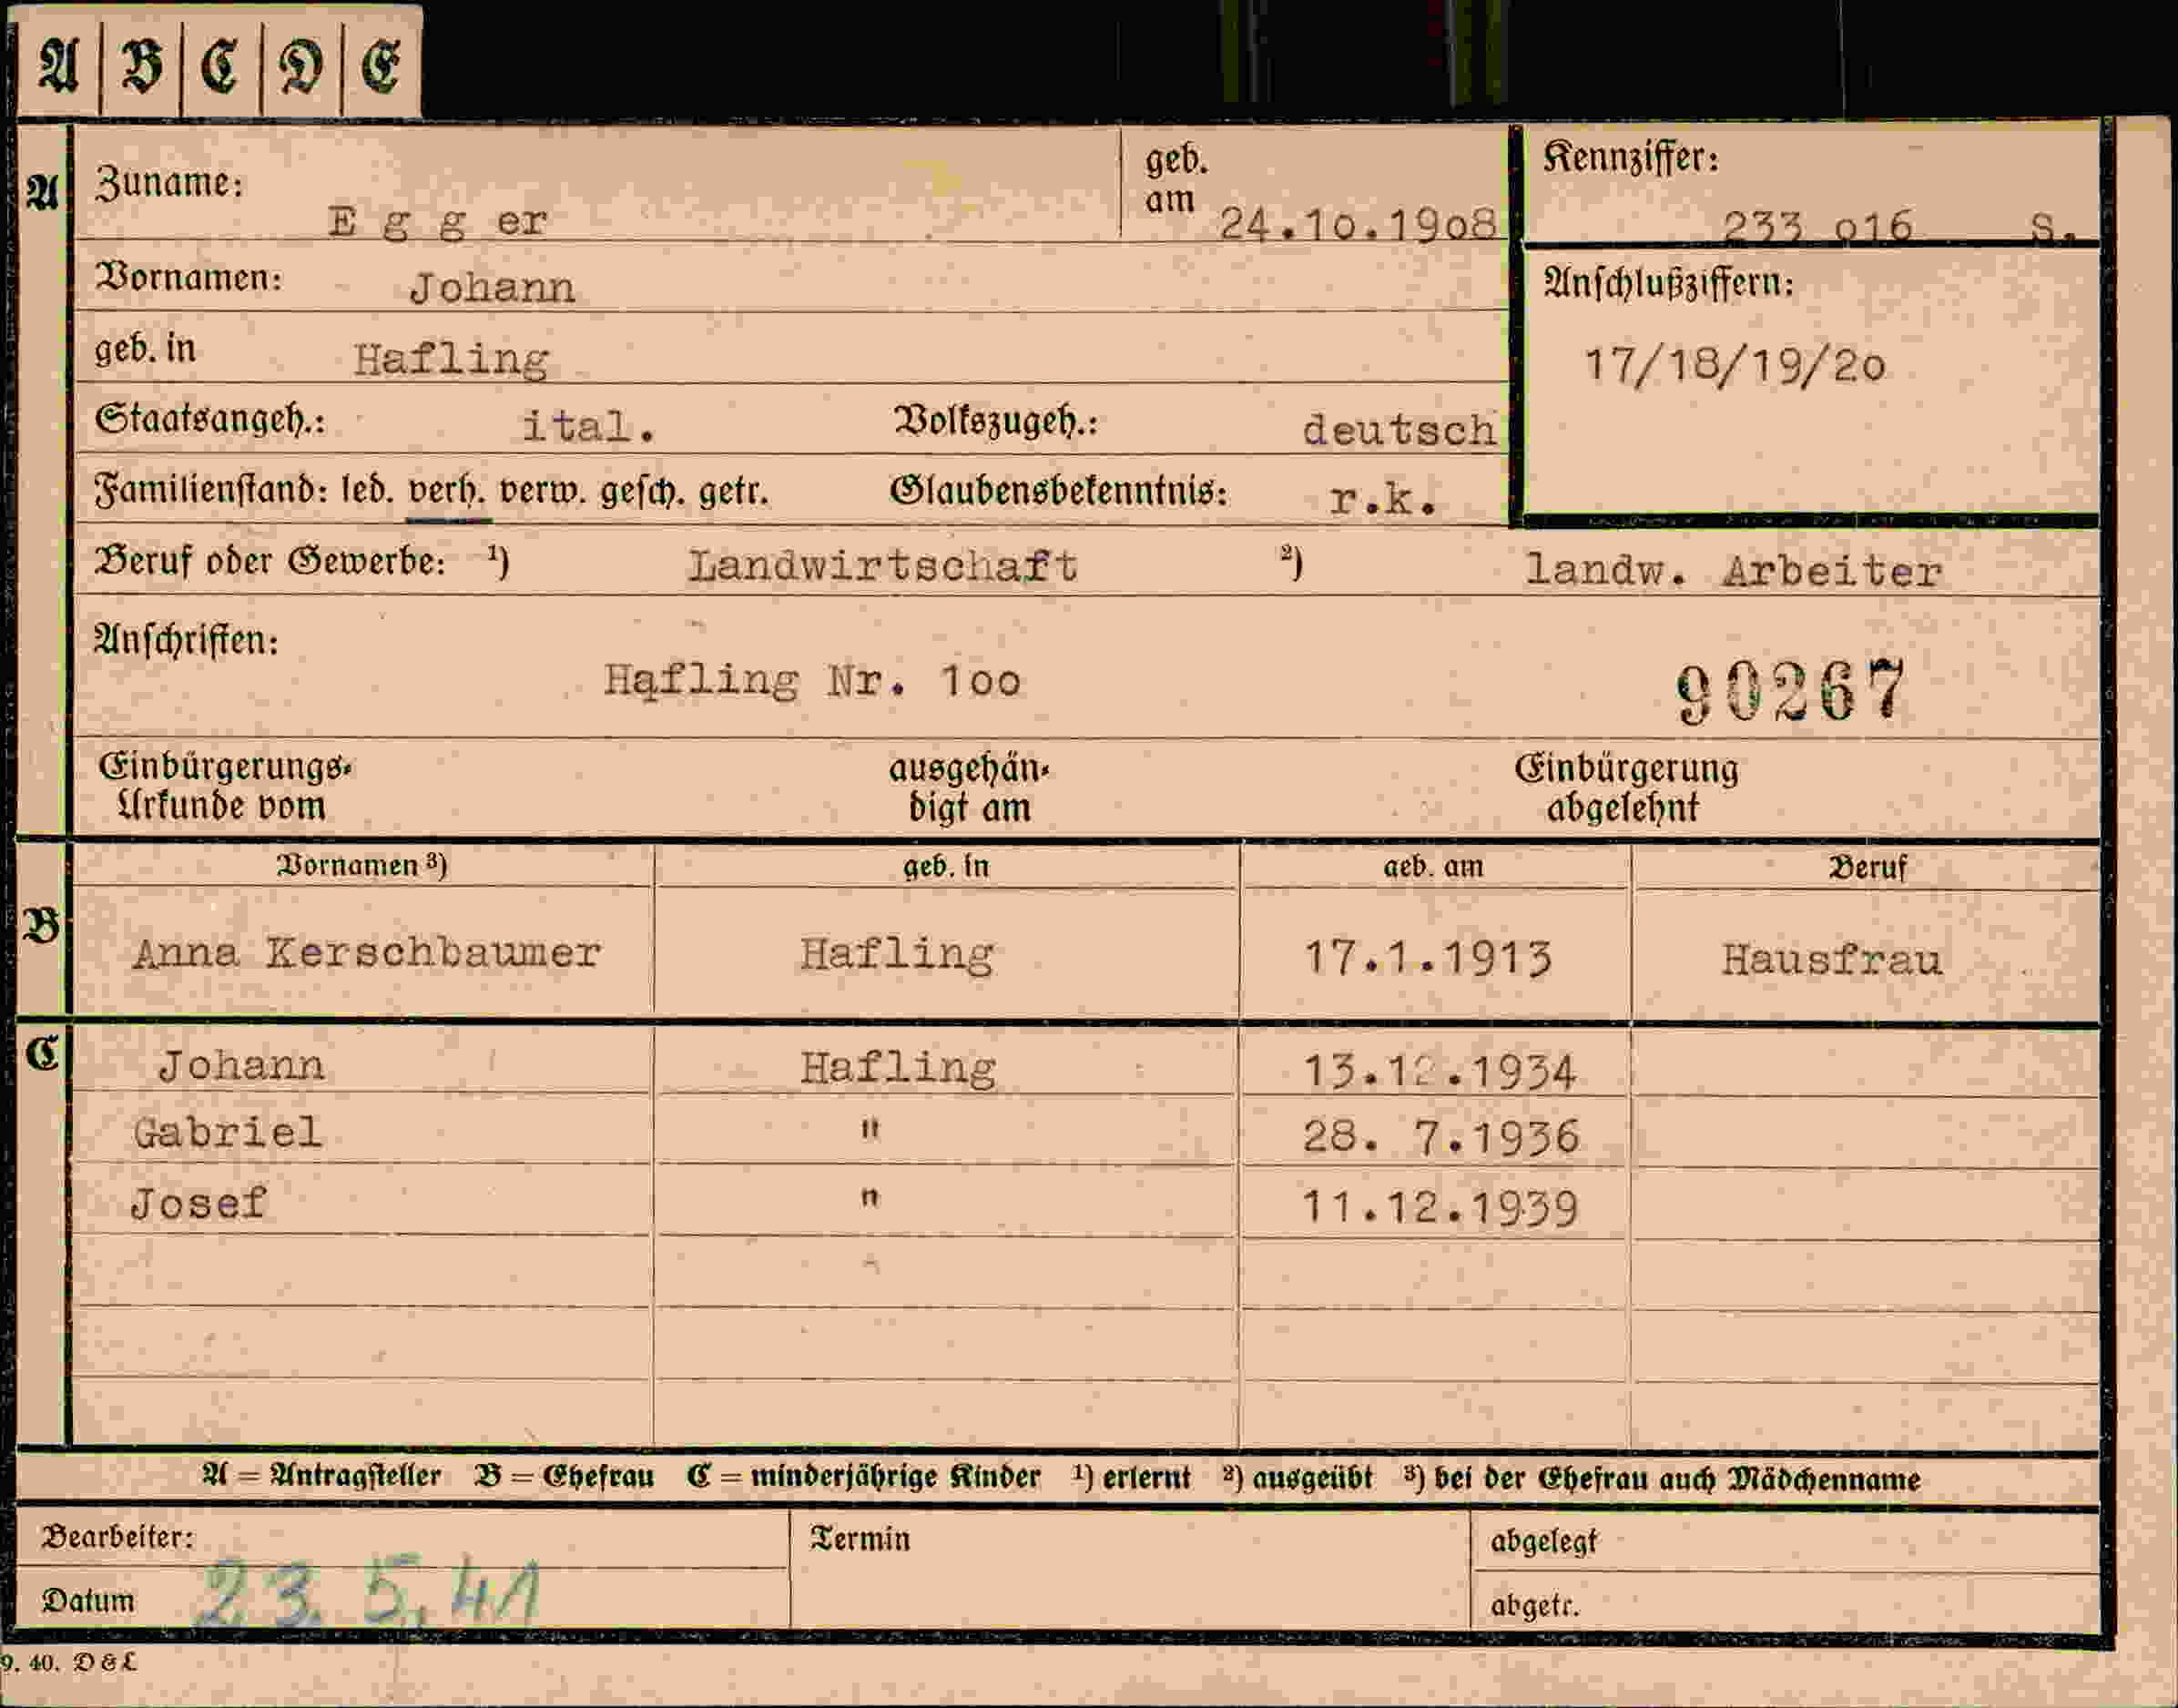 A B C D E
A Zuname: Egger geb. am 24.10.1908 Kennziffer: 233 016 S.
Vornamen: Johann Anschlußziffern:
geb. in Hafling 17/18/19/20
Staatsangeh.: ital. Volkszugeh.: deutsch
Familienstand: led. verh. verw. gesch. getr. Glaubensbekenntnis: r.k.
Beruf oder Gewerbe: ¹) Landwirtschaft ²) landw. Arbeiter
Anschriften:
Hafling Nr. 100 90267
Einbürgerungs- ausgehän- Einbürgerung
Urkunde vom digt am abgelehnt
Vornamen ³) geb. in geb. am Beruf
B Anna Kerschbaumer Hafling 17.1.1913 Hausfrau
C Johann Hafling 13.12.1934
Gabriel " 28. 7.1936
Josef " 11.12.1939
A = Antragsteller B = Ehefrau C = minderjährige Kinder ¹) erlernt ²) ausgeübt ³) bei der Ehefrau auch Mädchenname
Bearbeiter: Termin abgelegt
Datum 23. 5. 41 abgetr.
9. 40. D & L